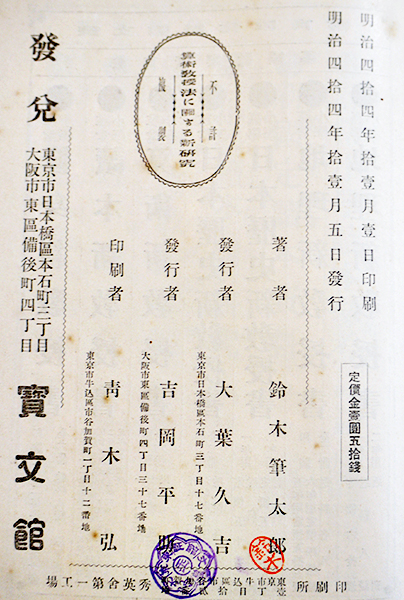 明治四拾四年拾壹月壹日印刷
明治四拾四年拾壹月五日發行
定價金壹圓五拾錢
不許
算術教授法に關する新研究
複製
著者 鈴木筆太郎
東京市日本橋區本石町三丁目十七番地
發行者 大葉久吉
大阪市東區備後町四丁目三十七番地
發行者 吉岡平助
東京市牛込區市谷加賀町一丁目十二番地
印刷者 青木弘
印刷所
秀英舍第一工場
發兌
東京市日本橋區本石町三丁目
大阪市東區備後町四丁目
寶文館